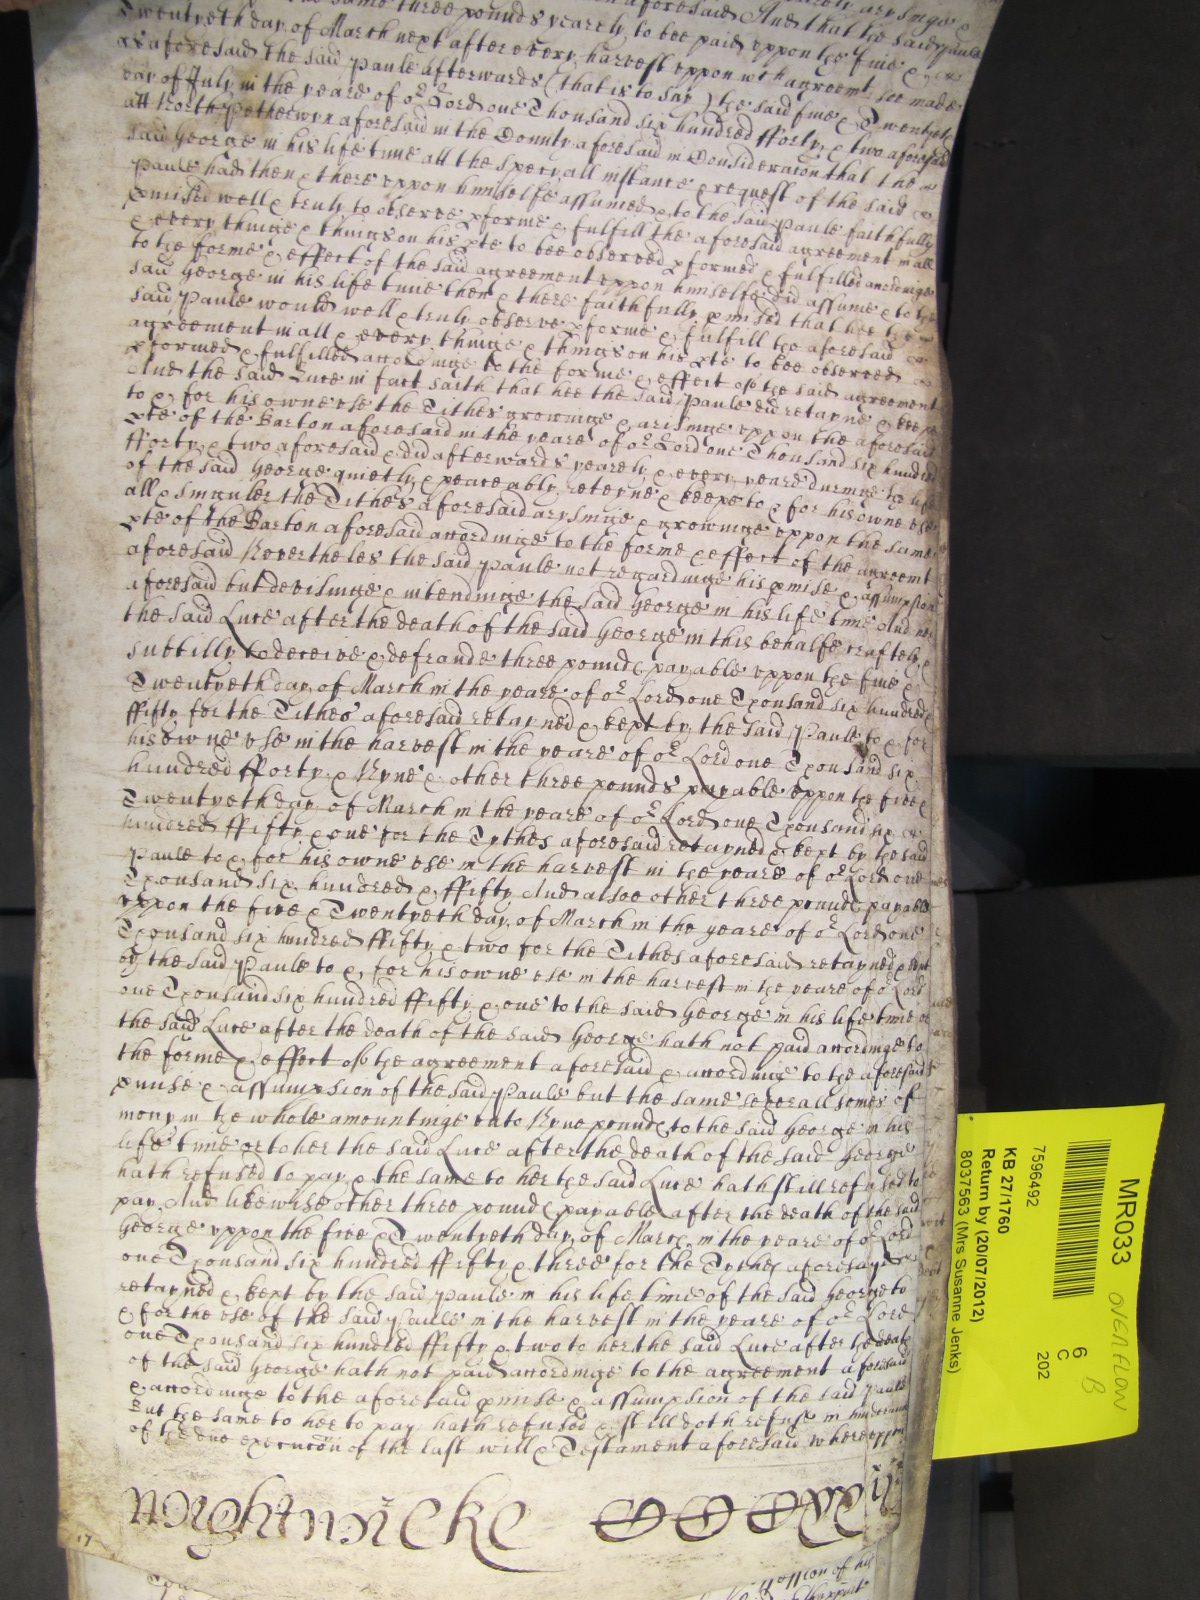 the same three pounds yearely to bee paid uppon the five &
Twentyeth day of March next after every harvest uppon wch agreemt soe made
as aforesaid the said Paule afterwards (that is to say) the said five & Twentyeth
day of July in the yeare of or Lord one Thousand six hundred fforty & two aforesaid
att North Petherwyn aforesaid in the County aforesaid in Consideracon that the
said George in his life time att the specyall instance & request of the said
Paule had then & there uppon himselfe assumed & to the said Paule faithfully
pmised well & truly to observe pforme & fulfill the aforesaid agreement in all
& every thinge & things on his pte to bee observed pformed & fulfilled accordinge
to the forme & effect of the said agreement uppon himselfe did assume & to the
said George in his life time then & there faithfully pmised that hee the
said Paule would well & truly observe pforme & fulfill the aforesaid
agreement in all & every thinge & things on his pte to bee observed
pformed & fulfilled accordinge to the forme & effect of the said agreement
And the said Luce in fact saith that hee the said Paule did retayne & keepe
to & for his owne use the Tithes growinge & arisinge uppon the aforesaid
pte of the Barton aforesaid in the yeare of or Lord one Thousand six hundred
fforty & two aforesaid & did afterwards yearely & every yeare duringe the life
of the said George quietly & peaceably retayne & keepe to & for his owne use
all & singuler the Tithes aforesaid arysinge & growinge uppon the same
pte of the Barton aforesaid accordinge to the forme & effect of the agreemt
aforesaid Nevertheles the said Paule not regardinge his pmise & assumpsion
aforesaid but devisinge & intendinge the said George in his life time And
the said Luce after the death of the said George in this behalfe craftely &
subtilly to deceive & defraude three pounds payable uppon the five &
Twentyeth day of March in the yeare of or Lord one Thousand six hundred
ffifty for the Tithes aforesaid retayned & kept by the said Paule to & for
his owne use in the harvest in the yeare of or Lord one Thousand six
hundred fforty & Nyne & other three pounds payable uppon the five &
Twentyeth day of March in the yeare of or Lord one Thousand six
hundred ffifty & one for the Tythes aforesaid retayned & kept by the said
Paule to & for his owne use in the harvest in the yeare of or Lord one
Thousand six hundred & ffifty And alsoe other three pounds payable
uppon the five & Twentyeth day of March in the yeare of or Lord one
Thousand six hundred ffifty & two for the Tithes aforesaid retayned & kept
by the said Paule to & for his owne use in the harvest in the yeare of or Lord
one Thousand six hundred ffifty & one to the said George in his life time or
the said Luce after the death of the said George hath not paid accordinge to
the forme & effect of the agreement aforesaid & accordinge to the aforesaid
pmise & assumpsion of the said Paule but the same severall somes of
mony in the whole amountinge unto Nyne pounds to the said George in his
life time or to her the said Luce after the death of the said George
hath refused to pay & the same to her the said Luce hath still refused to
pay And likewise other three pounds payable after the death of the said
George uppon the five & Twentyeth day of March in the yeare of or Lord
one Thousand six hundred ffifty & three for the Tythes aforesayd
retayned & kept by the said Paule in his life time of the said George to
& for the use of the said Paule in the harvest in the yeare of or Lord
one Thousand six hundred ffifty & two to her the said Luce after the death
of the said George hath not paid accordinge to the agreement aforesaid
& accordinge to the aforesaid pmise & assumpsion of the said Paule
But the same to her to pay hath refused & still doth refuse in
of the due execution of the last will & Testament aforesaid whereuppon
Wrightwicke
17
MR033 overflow
B
6
C
202
7596492
KB 27/1760
Return by (20/07/2012)
8037563 (Mrs Susanne Jenks)